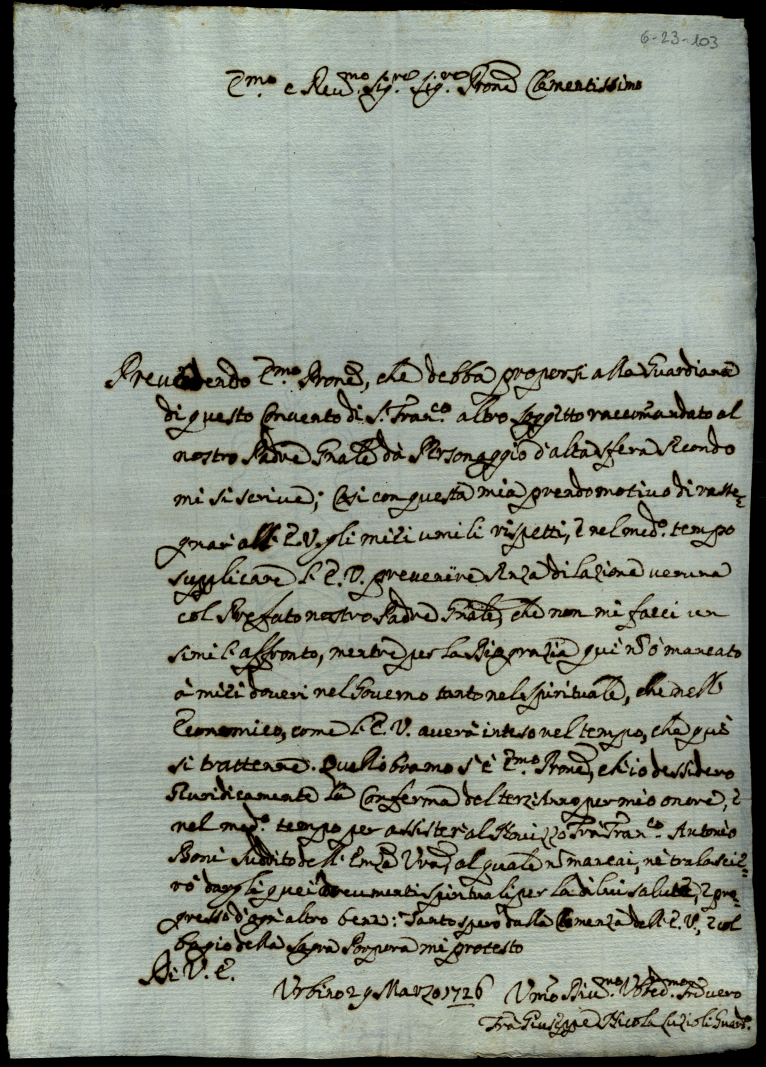 6-23-103
E.mo e Reu.mo Sig.re Sig.re Prone Clementissimo
Preuedendo E.mo Prone, che debba proporsi alla Guardiana
di questo Conuento di S. Fran.co altro Soggetto raccomandato al
nostro Padre Gnale da Personaggio d'alta sfera secondo
mi si scriue; Così con questa mia prendo motiuo di rasse=
gnar all'E.V. gli miei umili rispetti, e nel med.o tempo
supplicare l'E.V. preuenire senza dilazione ueruna
col Prefato nostro Padre Gnale, che non mi facci un
simil'affronto, mentre per la Dio grazia qui nō ò mancato
à miei doueri nel Gouerno tanto nel spirituale, che nell'
Economico, come l'E.V. auerà inteso nel tempo, che quì
si trattenne. Quello bramo s'è E.mo Prone, ch'io dessidero
Giuridicamente la Conferma del terz'Anno per mio onore, e
nel med.o tempo per assister al Nouizzo Fra Fran.co Antonio
Boni suddito dell'Emza Vra, al quale nō mancai, nè tralascie=
rò dargli quei documenti spirituali per la di lui salute, e pro=
gresso d'ogni altro bene: Tanto spero dalla Clemenza dell'E.V., e col
bagio della Sagra Porpora mi protesto
Di V.E.
Urbino 29 Marzo 1726
Umo Diu.mo Vbbed.mo Seruero
Fra Giuseppe Nicola Cuzioli Guard.o